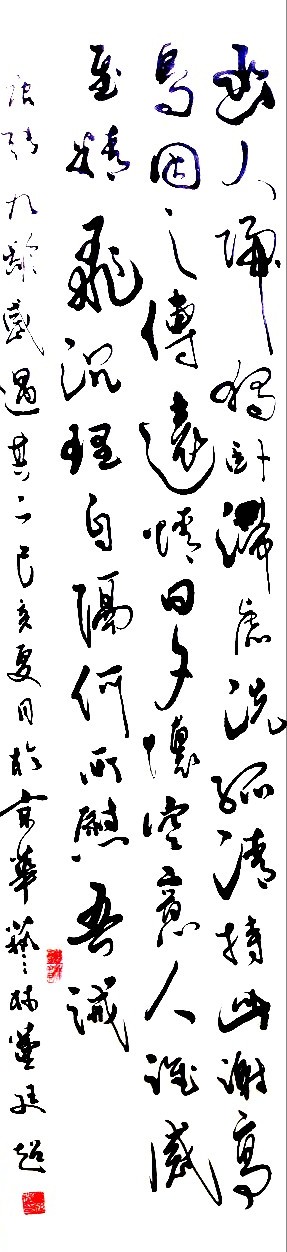 幽人歸獨卧滯慮洗孤清持此謝高
鳥因之傳遠情日夕懷空意人誰感
至精飛沉理自隔何所慰吾誠
唐張九齡感遇其二己亥夏月於京華藝林廷超